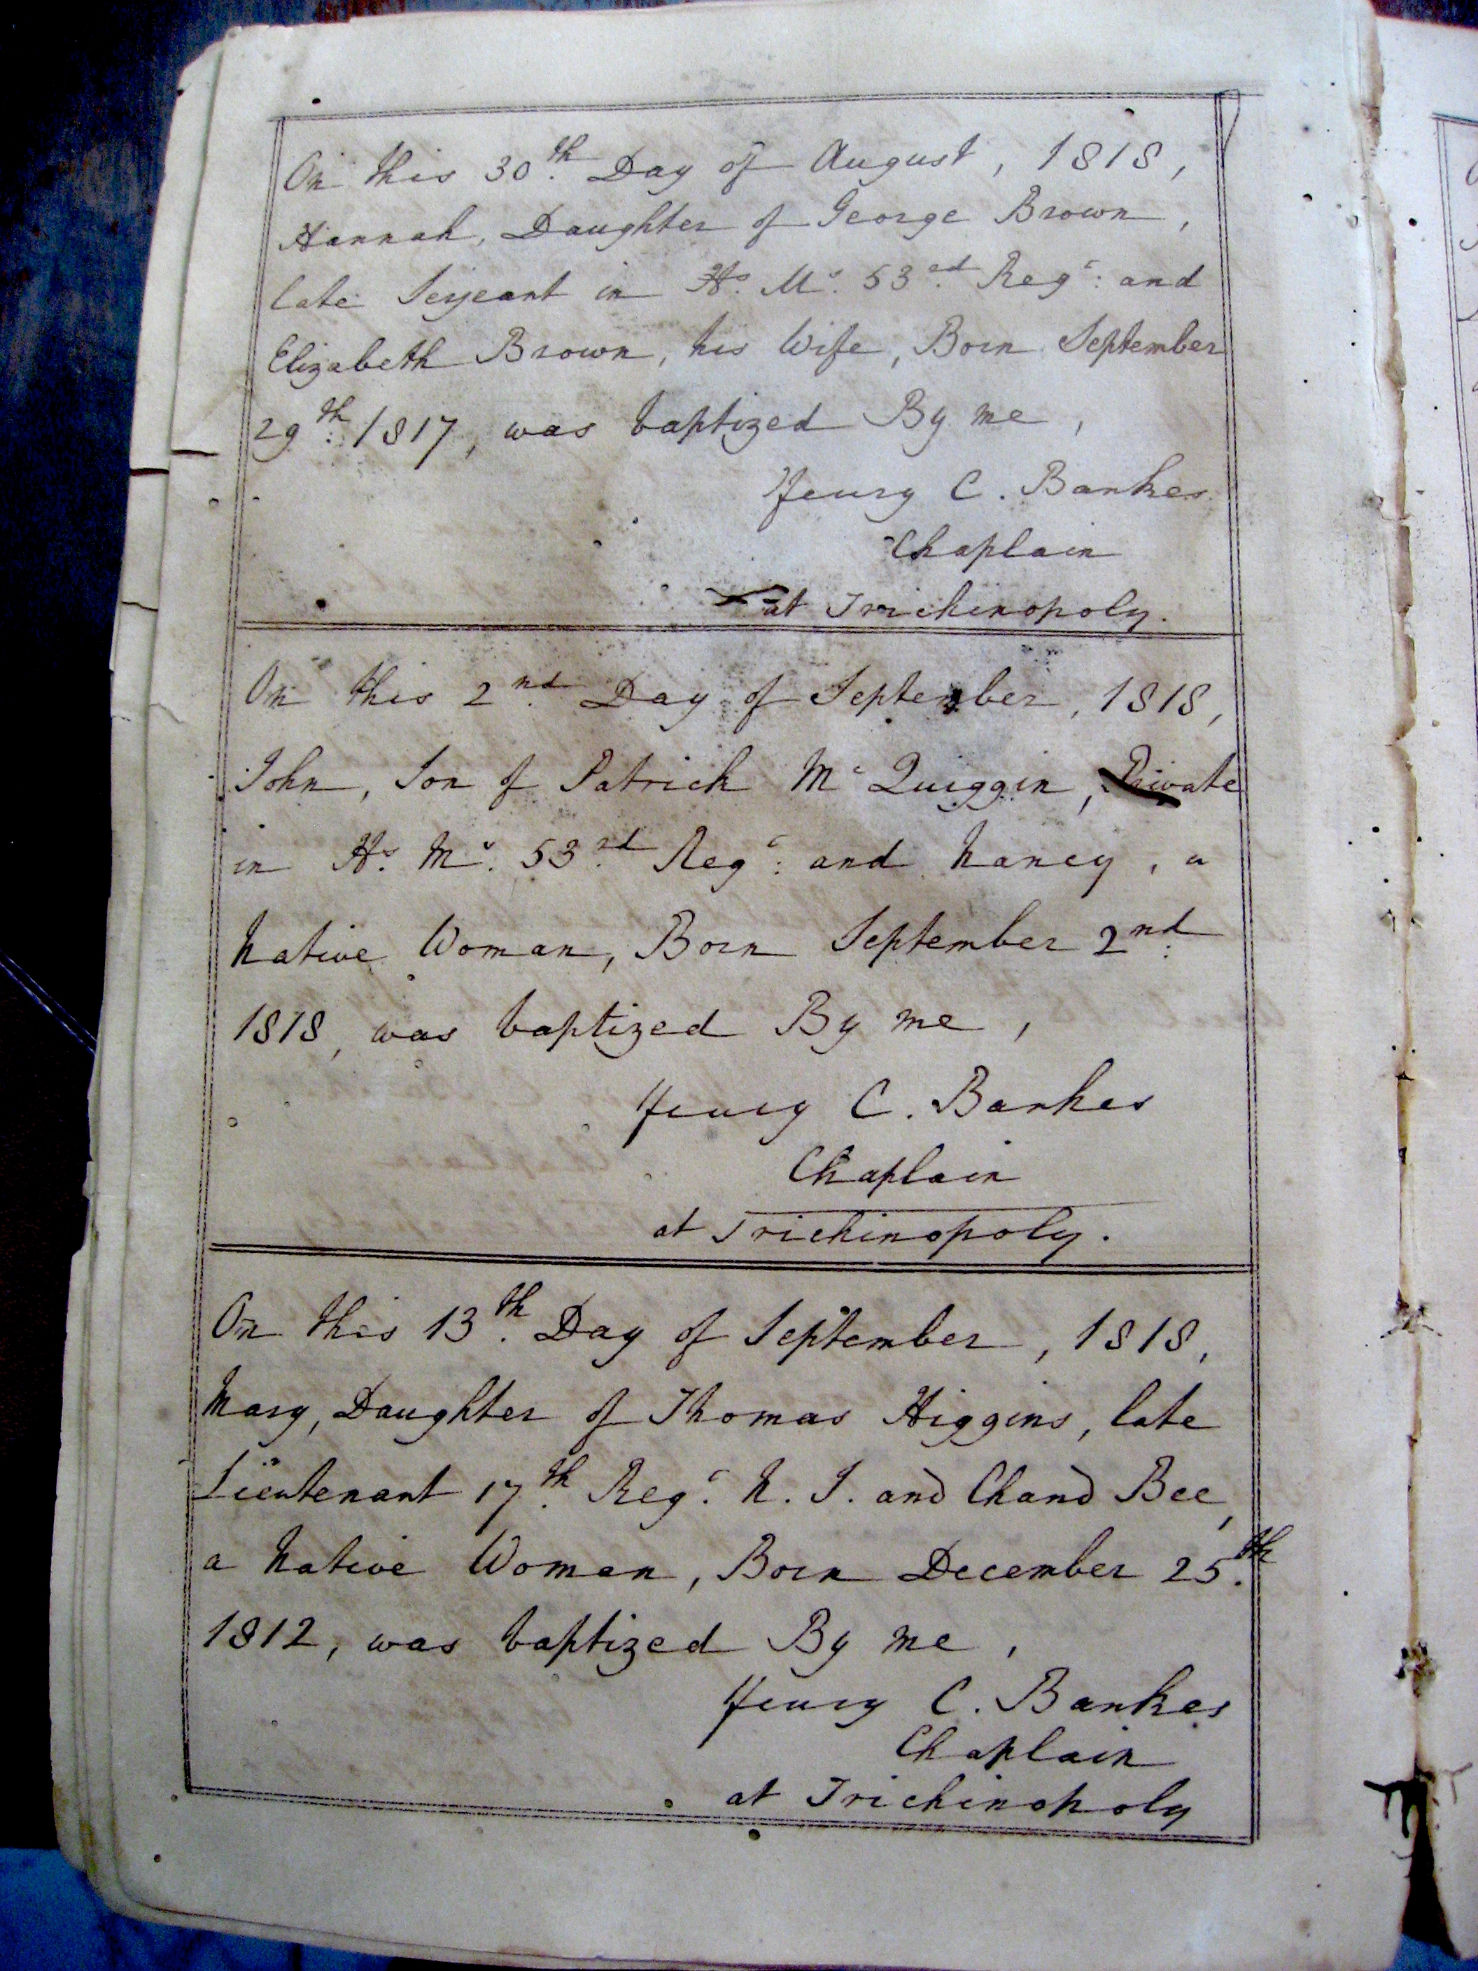 On this 30th Day of August, 1818,
Hannah, Daughter of George Brown,
late Serjeant in Hs. Ms. 53rd Regt: and
Elizabeth Brown, his Wife, Born September
29th: 1817, was baptized By me,
Henry C. Bankes
Chaplain
at Trichinopoly.
On this 2nd Day of September, 1818,
John, Son of Patrick McQuiggin, Private
in Hs. Ms. 53rd Regt: and Nancy, a
Native Woman, Born September 2nd:
1818, was baptized By me,
Henry C. Bankes
Chaplain
at Trichinopoly.
On this 13th. Day of September, 1818,
Mary, Daughter of Thomas Higgins, late
Lieutenant 17th. Regt. N. I. and Chand Bee,
a Native Woman, Born December 25th.
1812, was baptized By me,
Henry C. Bankes
Chaplain
at Trichinopoly